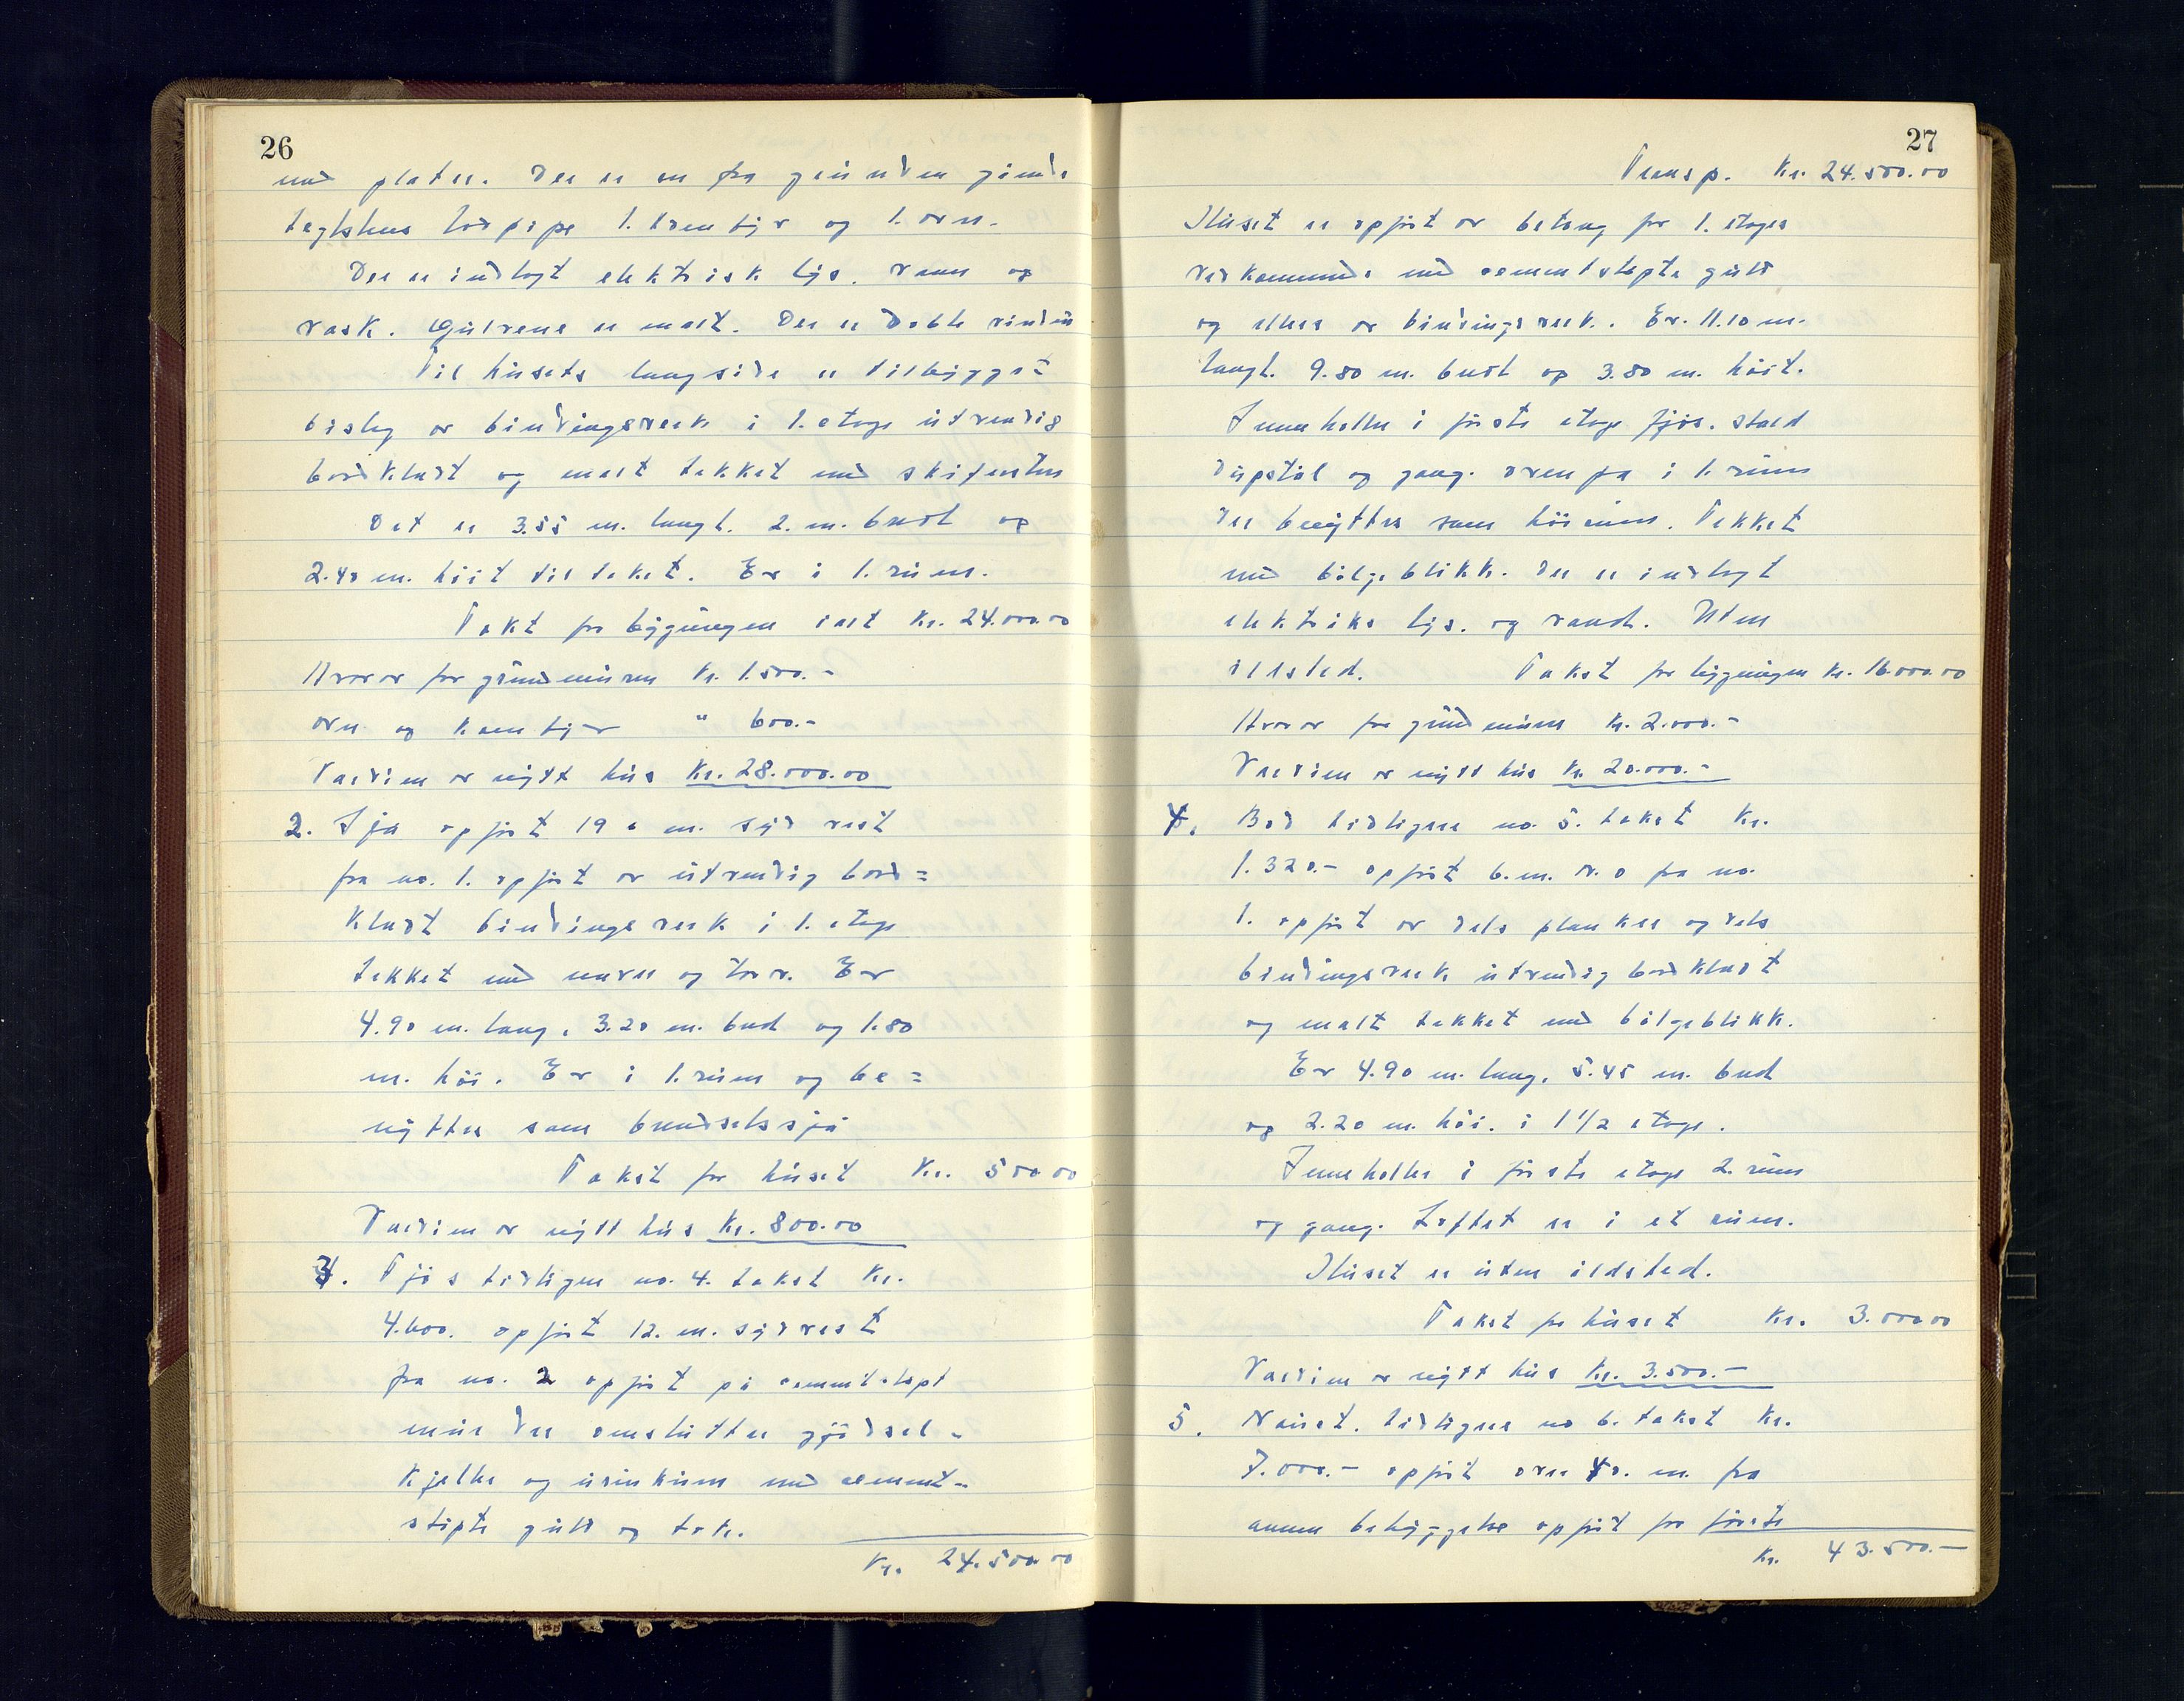 26
med plater. Der er en fra grunden gående
teglstens lodpipe 1. komfyr og 1. ovn.
Der er indlagt elektrisk lys. vann og
vask. Gulvene er malt. Der er doble vinduer
Til husets langside er tilbygget
bislag av bindingsverk i 1. etage utvendig
bordkledt og malt tekket med skifersten
Det er 3.55 m. langt. 2. m. bredt og
2.40 m. höit til taket. Er i 1. rum.
Takt for bygningen ialt Kr. 24.000.00
Hvorav for grundmuren Kr. 1.500.-
ovn og komfyr " 600.-
Verdien av nytt hus Kr. 28.000.00
2. Sjå opfört 19 m. syd vest
fra no. 1. opfört av utvendig bord=
kledt bindingsverk i 1. etage
tekket med never og torv. Er
4.90 m. lang, 3.20 m. bred og 1.80
m. höi. Er i 1. rum og be=
nyttes som brendselssjå
Takst for huset Kr. 500.00
Verdien av nytt hus Kr. 800.00
3. Fjös tidligere no. 4. takst Kr.
4.600. opfört 12. m. sydvest
fra no. 2 opfört på cementstöpt
mur der omslutter gjödsel-
kjeller og urinkum med cement-
stöpte gulv og tak.
Kr. 24.500.00
27
Transp. Kr. 24.500.00
Huset er opfört av betong for 1. etages
vedkommende med cementstöpte gulv
og ellers av bindingsverk. Er. 11.10 m.
langt. 9.80 m. bredt og 3.80 m. höit.
Inneholler i förste etage fjös. stald
dupstål og gang. ovenpå i 1. rum
der benyttes som höirum. Tekket
med bölgeblikk. Der er indlagt
elektriks lys. og vand. Uten
ildsted. Takst for bygningen Kr. 16.000.00
Hvorav for grundmuren Kr. 2.000.-
Verdien av nytt hus Kr. 20.000.-
4. Bod tidligere no. 5. takst Kr.
1.320.- opfört 6. m. N. O fra no.
1. opfört av dels planker og dels
bindingsverk utvendig bordkledt
og malt tekket med bölgeblikk.
Er 4.90 m. lang, 5.45 m. bred
og 2.20 m. höi. i 1 1/2 etage.
Inneholler i förste etage 2. rum
og gang. Loftet er i et rum.
Huset er uten ildsted.
Takst for huset Kr. 3.000.00
Verdien av nytt hus Kr. 3.500.-
5. Naust. tidligere no 6. takst Kr.
7.000.- opfört over 40. m. fra
annen bebyggelse opfört for förste
Kr. 43.500.-